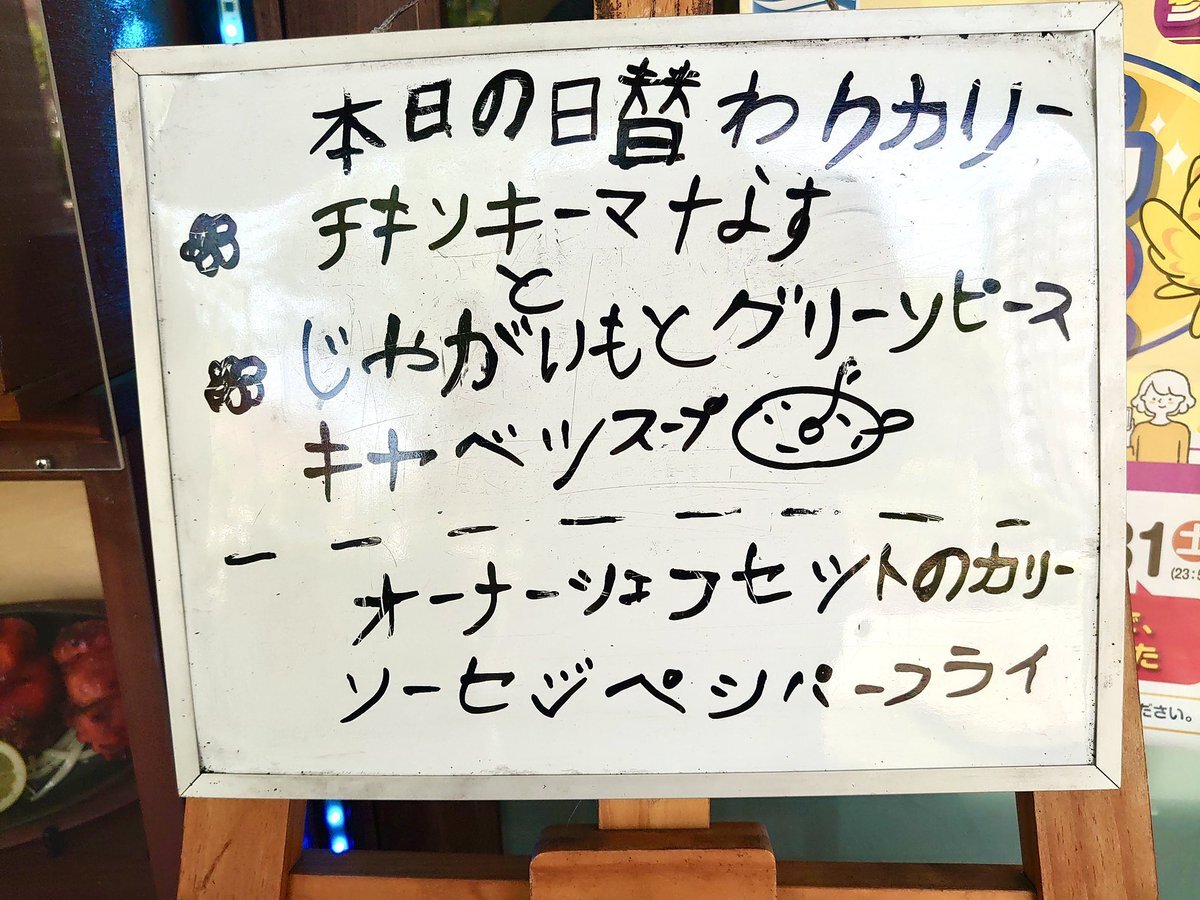 本日の日替わりカリー
チキンキーマナなす
と
じゃがいもとグリーンピース
キャベツスープ
オーナーシェフセットのカリー
ソーセジペシパーフライ
31土
(23:5
た
ださい。